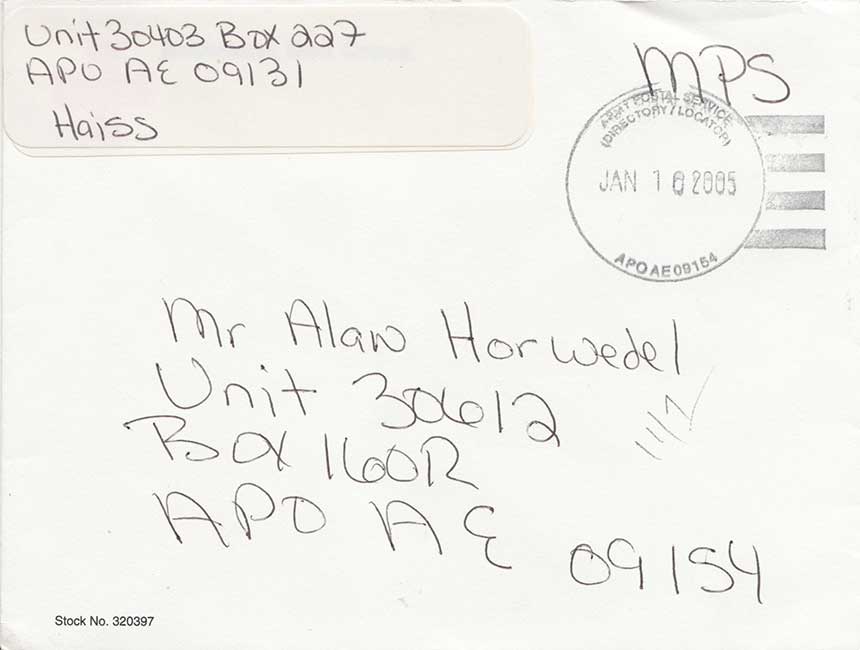 Unit 30403 Box 227
APO AE 09131
Haiss
MPS
ARMY POSTAL SERVICE
(DIRECTORY/LOCATOR)
JAN 10 2005
APO AE 09154
Mr Alan Horwedel
Unit 30612
Box 160R
APO AE
09154
Stock No. 320397